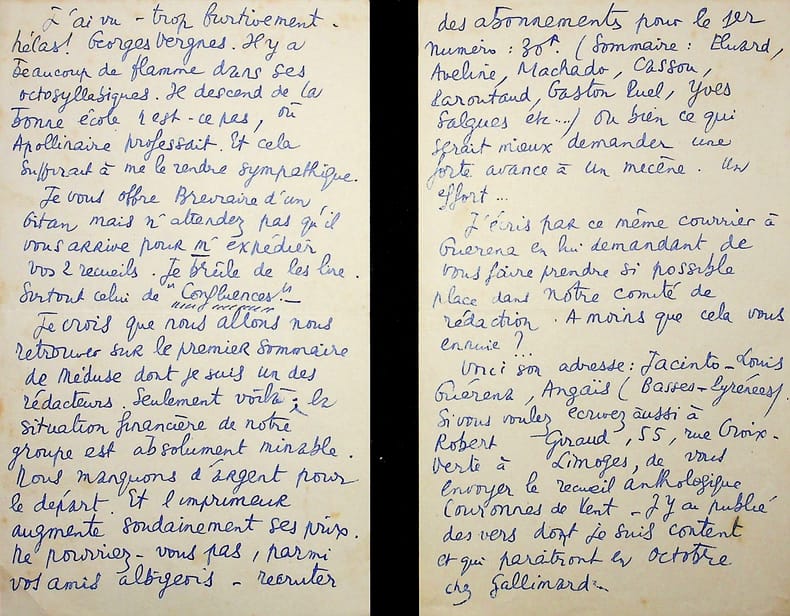 J'ai vu - trop furtivement -
hélas! Georges Vergnes. Il y a
beaucoup de flamme dans ses
octosyllabiques. Il descend de la
bonne école n'est-ce pas, où
Apollinaire professait. Et cela
suffirait à me le rendre sympathique.
Je vous offre Breviaire d'un
Gitan mais n'attendez pas qu'il
vous arrive pour m'expédier
vos 2 recueils. Je brûle de les lire.
Surtout celui de "Confluences".-
Je crois que nous allons nous
retrouver sur le premier sommaire
de Méduse dont je suis un des
rédacteurs. Seulement voilà; la
situation financière de notre
groupe est absolument minable.
Nous manquons d'argent pour
le départ. Et l'imprimeur
augmente soudainement ses prix.
Ne pourriez-vous pas, parmi
vos amis albigeois - recruter
des abonnements pour le 1er
numéro : 30f. (Sommaire : Eluard,
Aveline, Machado, Cassou,
Paroutaud, Gaston Puel, Yves
Salgues etc...) ou bien ce qui
serait mieux demander une
forte avance à un mécène. Un
effort...
J'écris par ce même courrier à
Guerena en lui demandant de
vous faire prendre si possible
place dans notre comité de
rédaction. A moins que cela vous
ennuie?
Voici son adresse: Jacinto-Louis
Guérena, Angaïs (Basses-Pyrénées).
Si vous voulez écrivez aussi à
Robert Giraud, 55, rue Croix-
Verte à Limoges, de vous
envoyer le recueil anthologique
Couronnes de Vent - J'y ai publié
des vers dont je suis content
et qui paraîtront en Octobre
chez Gallimard.-